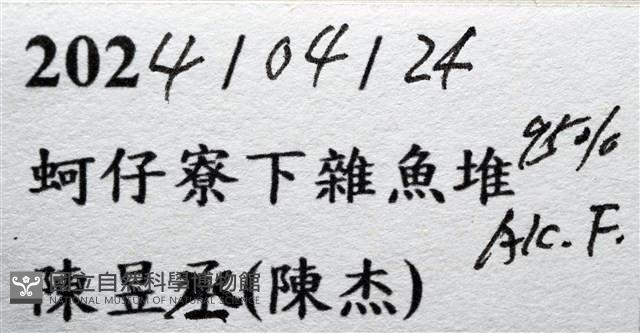 2024/04/24
蚵仔寮下雜魚堆 95%
Alc. F.
陳昱丞(陳杰)
國立自然科學博物館
NATIONAL MUSEUM OF NATURAL SCIENCE